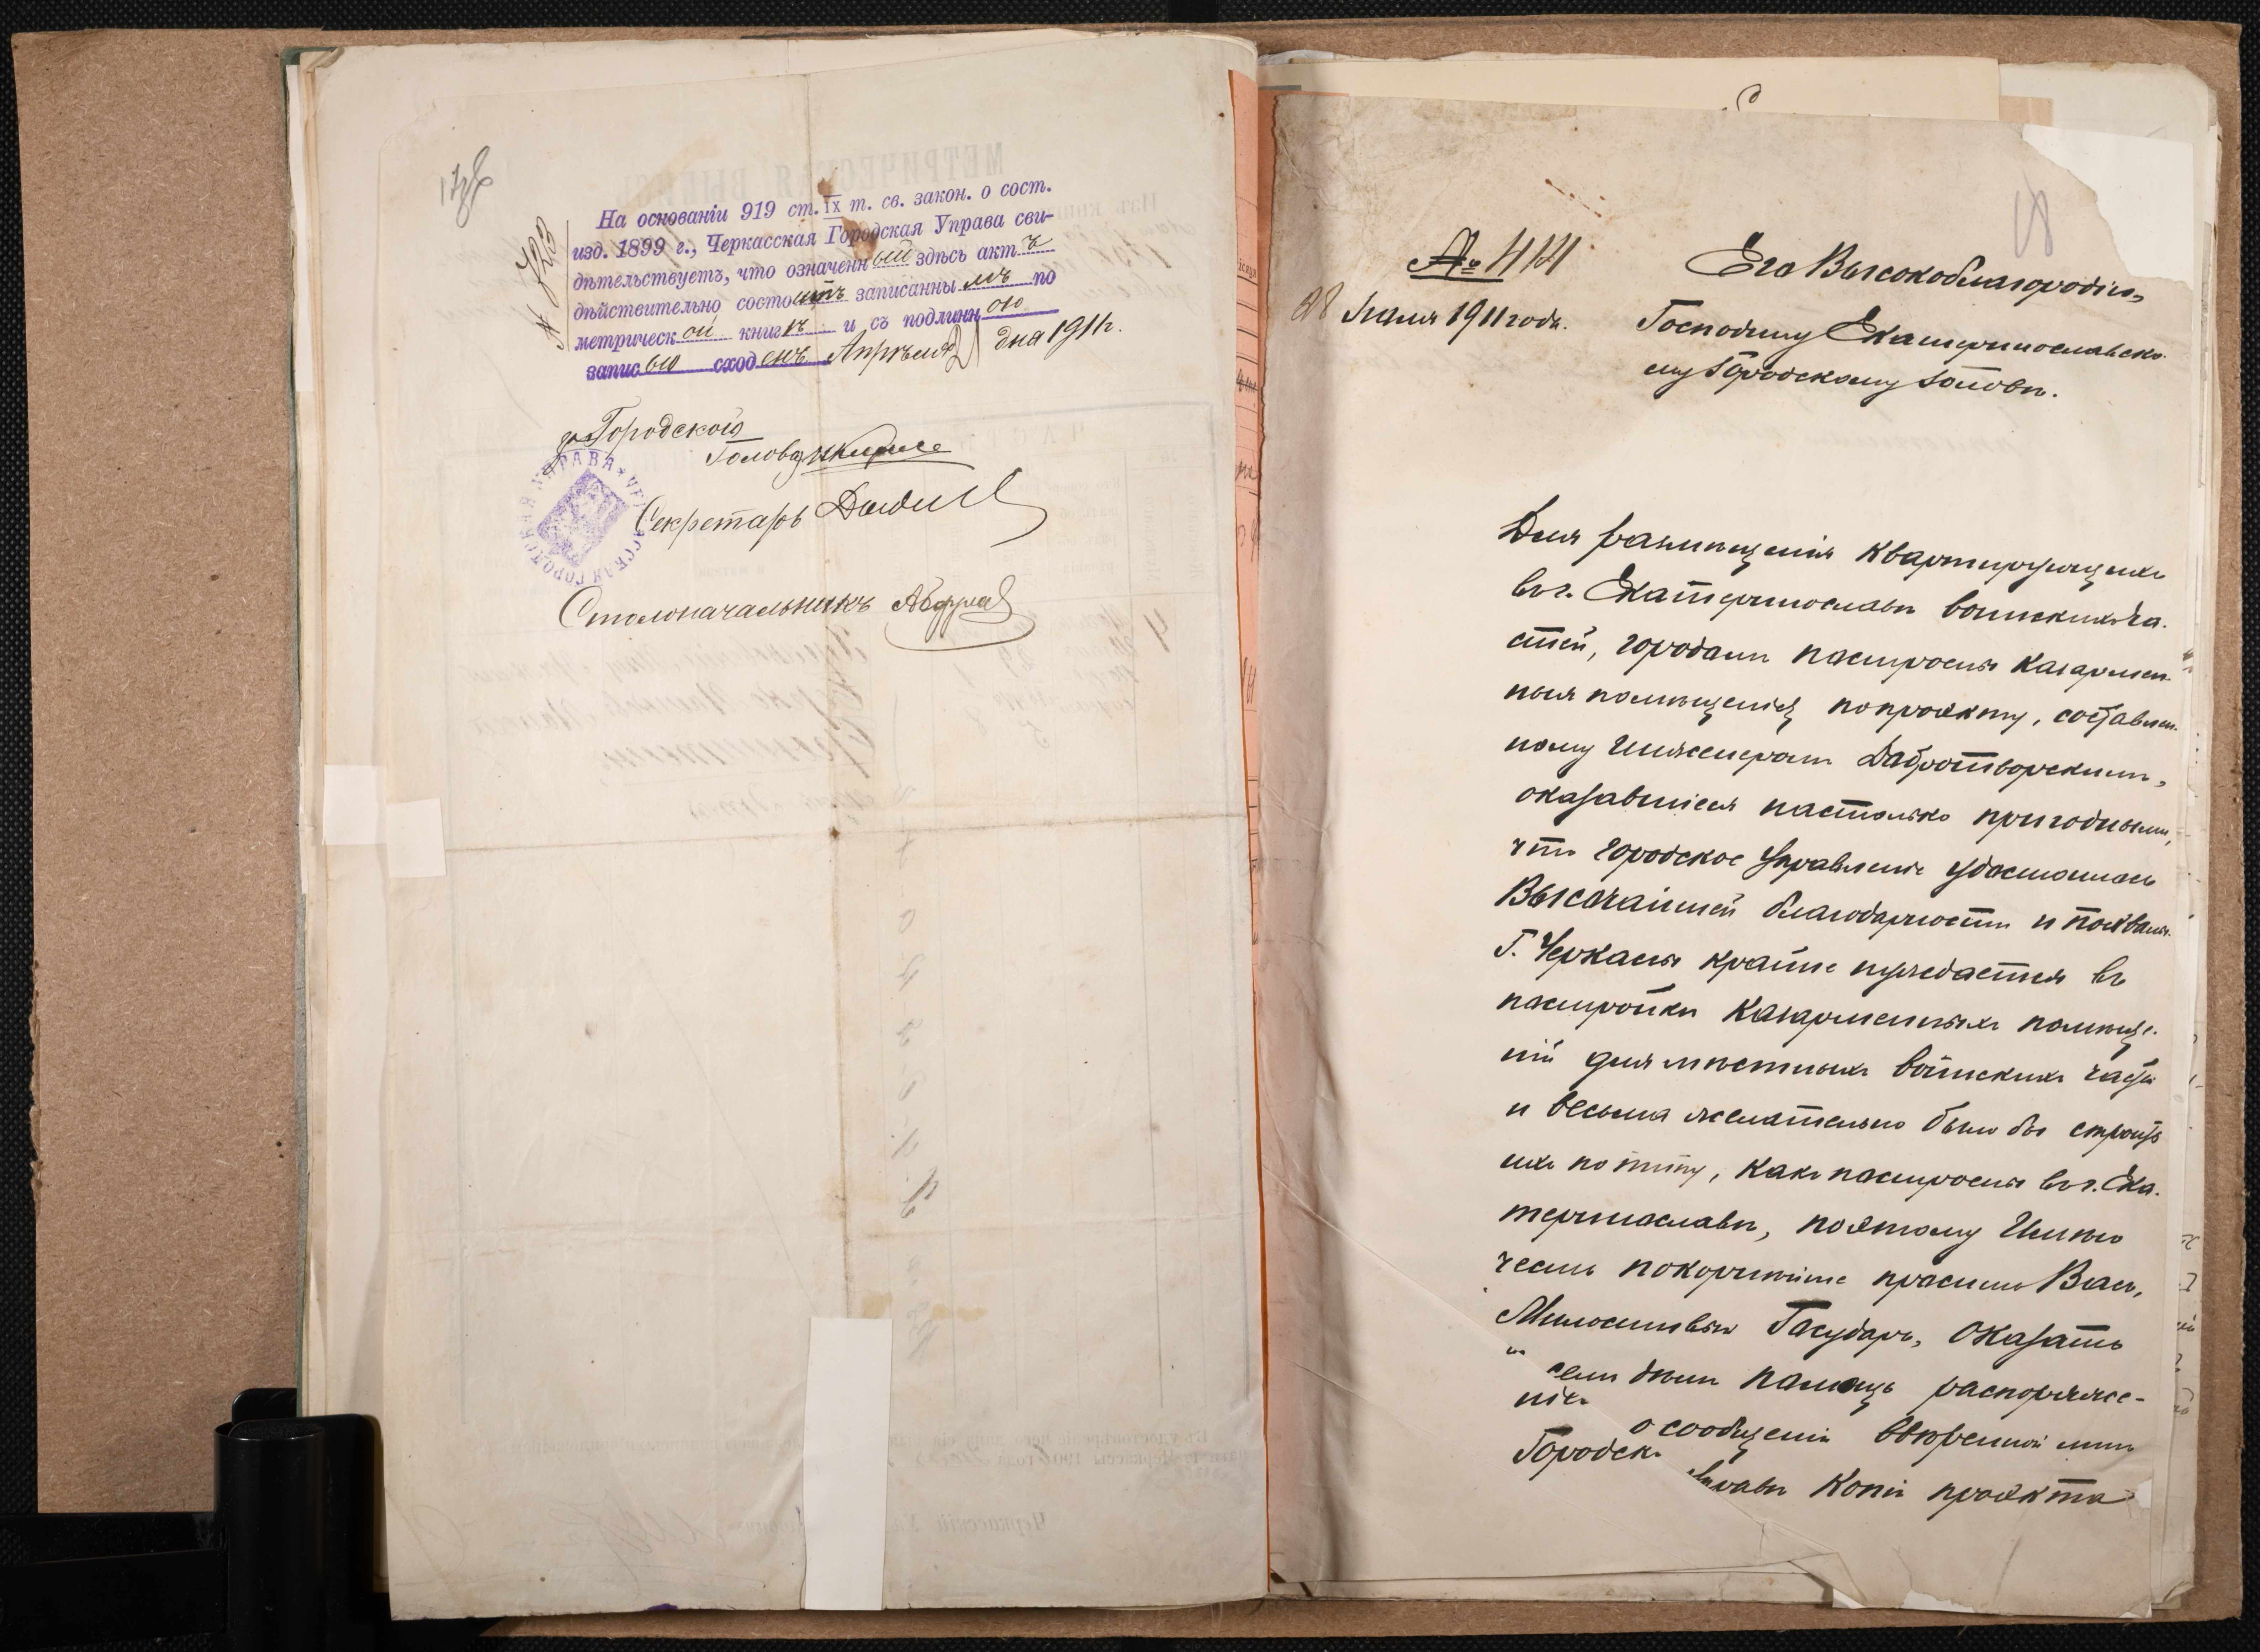 № 723
На основаніи 919 ст. IX т. св. закон. о сост.
изд. 1899 г., Черкасская Городская Управа сви-
дѣтельствуетъ, что означенный здѣсь актъ
дѣйствительно состоитъ записаннымъ по
метрической книгѣ и съ подлинною
записью сходенъ Апрѣля 21 дня 1911 г.
Городского
Головы
Секретарь
Столоначальникъ
ЧЕРКАССКАЯ ГОРОДСКАЯ УПРАВА
№
28 1911 года.
Его Высокоблагородію,
Господину Екатеринославско-
му Городскому Головѣ.
Для размѣщенія квартирующихъ
въ г. Екатеринославѣ воинскихъ ча-
стей, городомъ построены казармен-
ныя помѣщенія по проэкту, составлен-
ному Инженеромъ Добротворскимъ,
оказавшіеся настолько пригодными,
что городское Управленіе удостоилось
Высочайшей благодарности и похвалы.
Г. Черкассы крайне нуждается въ
постройкѣ казарменныхъ помѣще-
ній для мѣстныхъ воинскихъ частей
и весьма желательно было бы строить
ихъ по типу, какъ построены въ г. Ека-
теринославѣ, поэтому Имѣю
честь покорнѣйше просить Васъ,
Милостивый Государь, оказать
въ семъ дѣлѣ помощь распоряже-
ніемъ о сообщеніи ввѣренной мнѣ
Городской Управѣ копіи проэкта